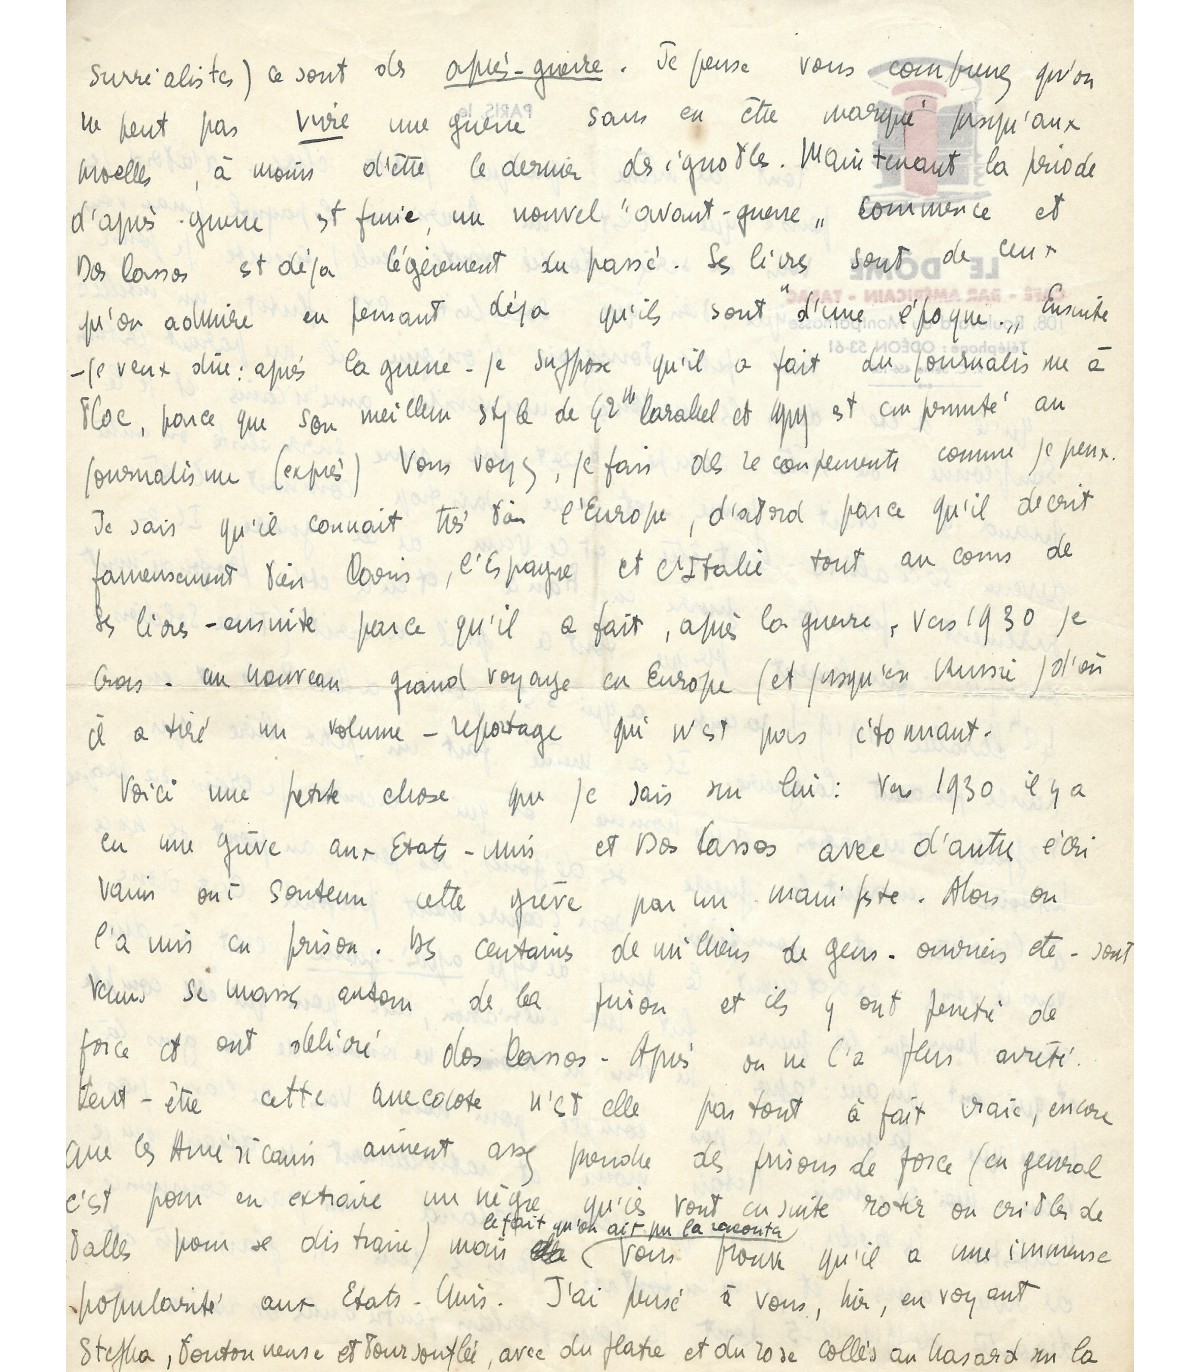 surréalistes) ce sont des après-guerre. Je pense vous comprenez qu'on
ne peut pas vivre une guerre sans en être marqué jusqu'aux
moelles, à moins d'être le dernier des ignobles. Maintenant la période
d'après-guerre est finie, un nouvel "avant-guerre" commence et
Dos Passos est déja légèrement du passé. Ses livres sont de ceux
qu'on admire en pensant déja qu'ils sont "d'une époque". Ensuite
- je veux dire: après la guerre - je suppose qu'il a fait du journalisme à
bloc, parce que son meilleur style de 42th Parallel et 1919 est emprunté au
journalisme (exprès) Vous voyez, je fais des recoupements comme je peux.
Je sais qu'il connait très bien l'Europe, d'abord parce qu'il decrit
fameusement bien Paris, l'Espagne et l'Italie tout au cours de
ses livres - ensuite parce qu'il a fait, après la guerre, vers 1930 je
crois - un nouveau grand voyage en Europe (et jusqu'en Russie) d'où
il a tiré un volume - reportage qui n'est pas étonnant.
Voici une petite chose que je sais sur lui: Vers 1930 il y a
eu une grève aux Etats-Unis et Dos Passos avec d'autres écri
vains ont soutenu cette grève par un manifeste. Alors on
l'a mis en prison. Des centaines de milliers de gens - ouvriers etc - sont
venus se masser autour de la prison et ils y ont penetré de
force et ont délivré dos Passos - Après on ne l'a plus arrêté.
Peut-être cette anecdote n'est elle pas tout à fait vraie, encore
que les Américains aiment assez prendre des prisons de force (en general
c'est pour en extraire un nègre qu'ils vont ensuite rotir ou cribler de
le fait qu'on ait pu la raconter
balles pour se distraire) mais vous prouve qu'il a une immense
popularité aux Etats-Unis. J'ai pensé à vous, hier, en voyant
Stepha, boutonneuse et boursouflée, avec du platre et du rose collés au hasard sur la
PARIS, le
LE DÔME
CAFÉ - BAR AMÉRICAIN - TABAC
108, Boulevard du Montparnasse
Téléphone: ODÉON 53-61